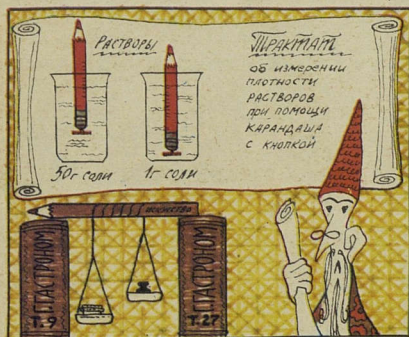 Растворы
50г соли
1г соли
Трактат
об измерении
плотности
растворов
при помощи
карандаша
с кнопкой
искусство
ГАСТРОНОМ
Т.9
ГАСТРОНОМ
Т.27